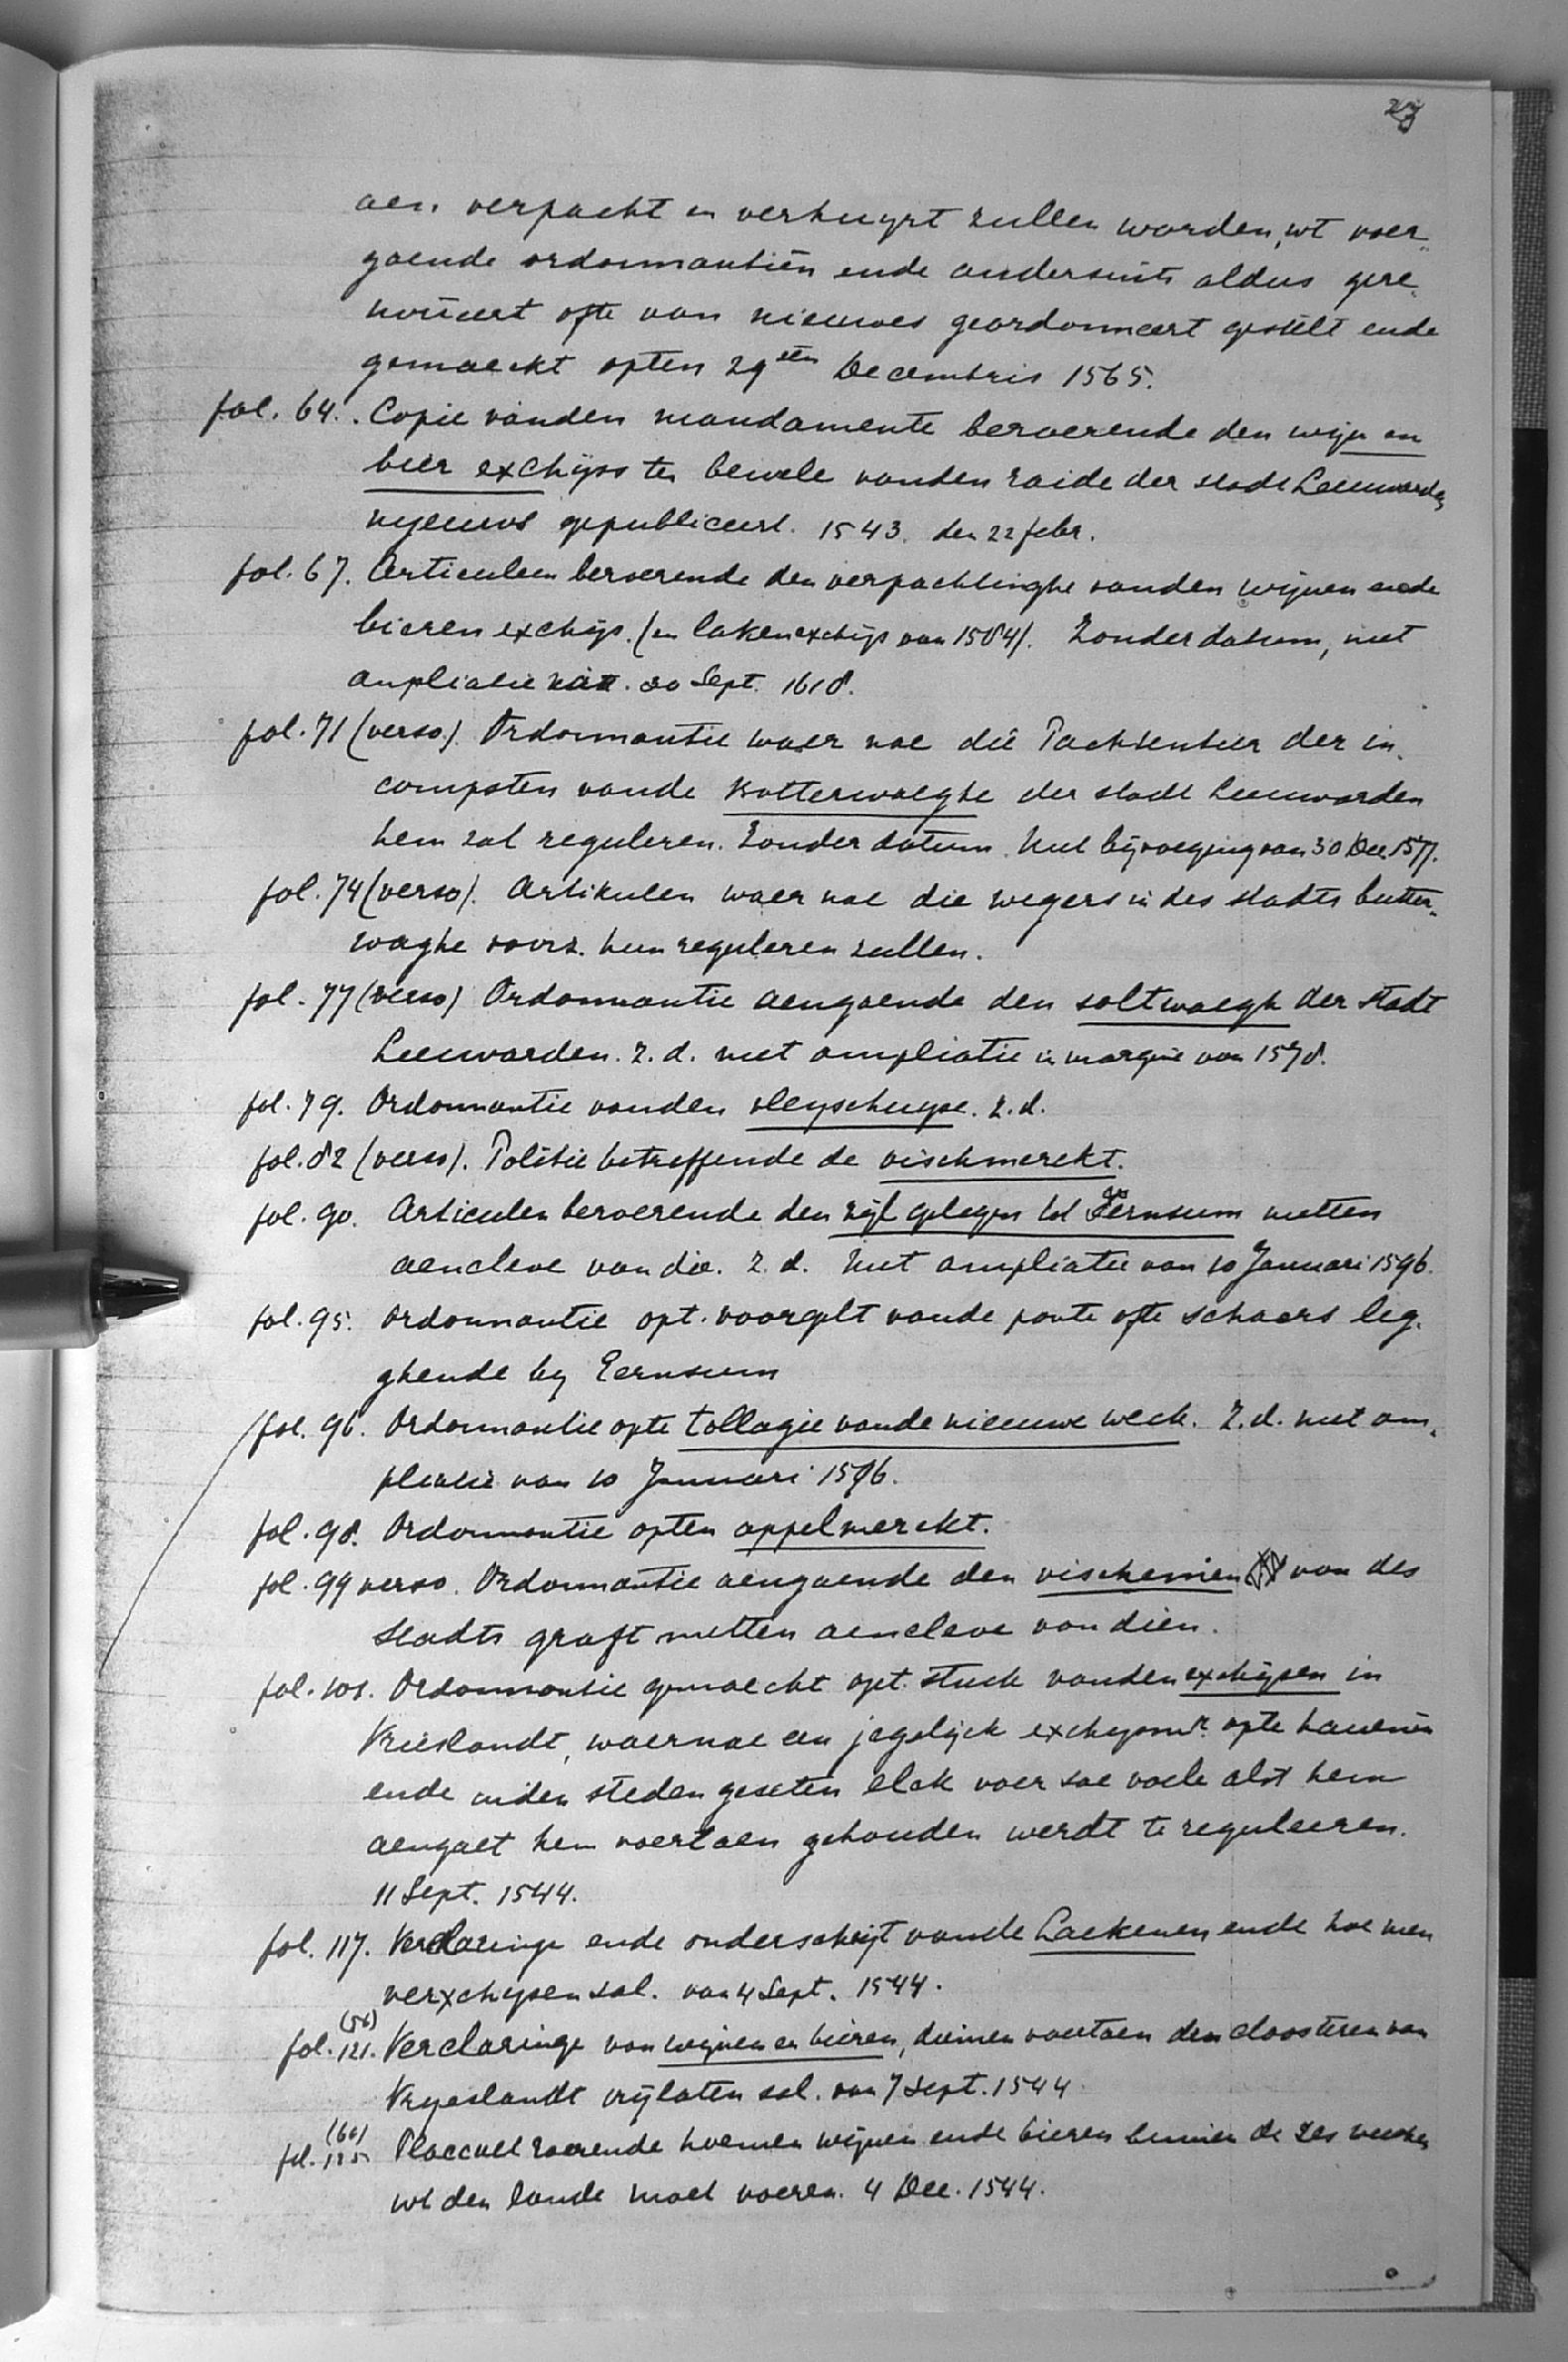 23
aen. verpacht en verhuyrt zullen worden, wt voer„
gaende ordonnantiën ende anderssints aldus gere„
noūeert ofte van nieuwes geordonneert gestelt ende
gemaeckt opten 29sten Decembris 1565.
fol. 64. Copie vanden mandamente beroerende den wijn en
bier exchijss ten bevele vanden raide der stadt Leeuwarden
nyeuws gepubliceert. 1543. den 22 febr.
fol. 67. Articulen beroerende den verpachtinghe vanden wijnen ende
bieren exchijs. (en lakenexchijs van 1584). Zonder datum, met
ampliatie van 20 Sept. 1618.
fol. 71 (verso). Ordonnantie waer nae die Pachtenaer der in„
compsten vande Botterwaeghe der stadt Leeuwarden
hem zal reguleren. Zonder datum. Met bijvoeging van 30 Dec. 1577.
fol. 74 (verso). Artikulen waer nae die wegers in des stadts butter„
waghe voorz. hem reguleren zullen.
fol. 77 (verso) Ordonnantie aengaende den soltwaegh der stadt
Leeuwarden. Z.d. met ampliatie in margine van 1578.
fol. 79. Ordonnantie vanden vleyschuyse. Z.d.
fol. 82 (verso). Politie betreffende de vischmerckt.
fol. 90. Articulen beroerende den zijl gelegen tot Eernsum metten
aencleve van die. Z.d. Met ampliatie van 10 Januari 1596.
fol. 95. Ordonnantie opt. voorgelt vande ponte ofte schaers leg„
ghende by Eernsum
fol. 96. Ordonnantie opte tollagie vande nieuwe weck. Z.d. met am„
pliatie van 10 Januari 1596.
fol. 98. Ordonnantie opten appelmerckt.
fol. 99 verso. Ordonnantie aengaende den vischerien van des
stadts graft metten aencleve van dien.
fol. 101. Ordonnantie gemaeckt opt. stuck vanden exchijsen in
Vrieslandt, waernae een jegelijck exchysmr. opte hauenen
ende inden steden geseten elck voer soe voele alst hem
aengaet hem voertaen gehouden werdt te reguleeren.
11 Sept. 1544.
fol. 117. Verclaringe ende onderscheyt vande Laekenen ende hoe men
verxchysen sal. van 4 Sept. 1544.
(56)
fol. 121. Verclaringe van wijnen en bieren, diemen voertaen den cloosteren van
Vryeslandt vrijlaten sal. van 7 Sept. 1544
(60)
fol. 125. Placcaet roerende hoemen wijnen ende bieren binnen de zes weecken
wt den lande moet voeren. 4 Dec. 1544.